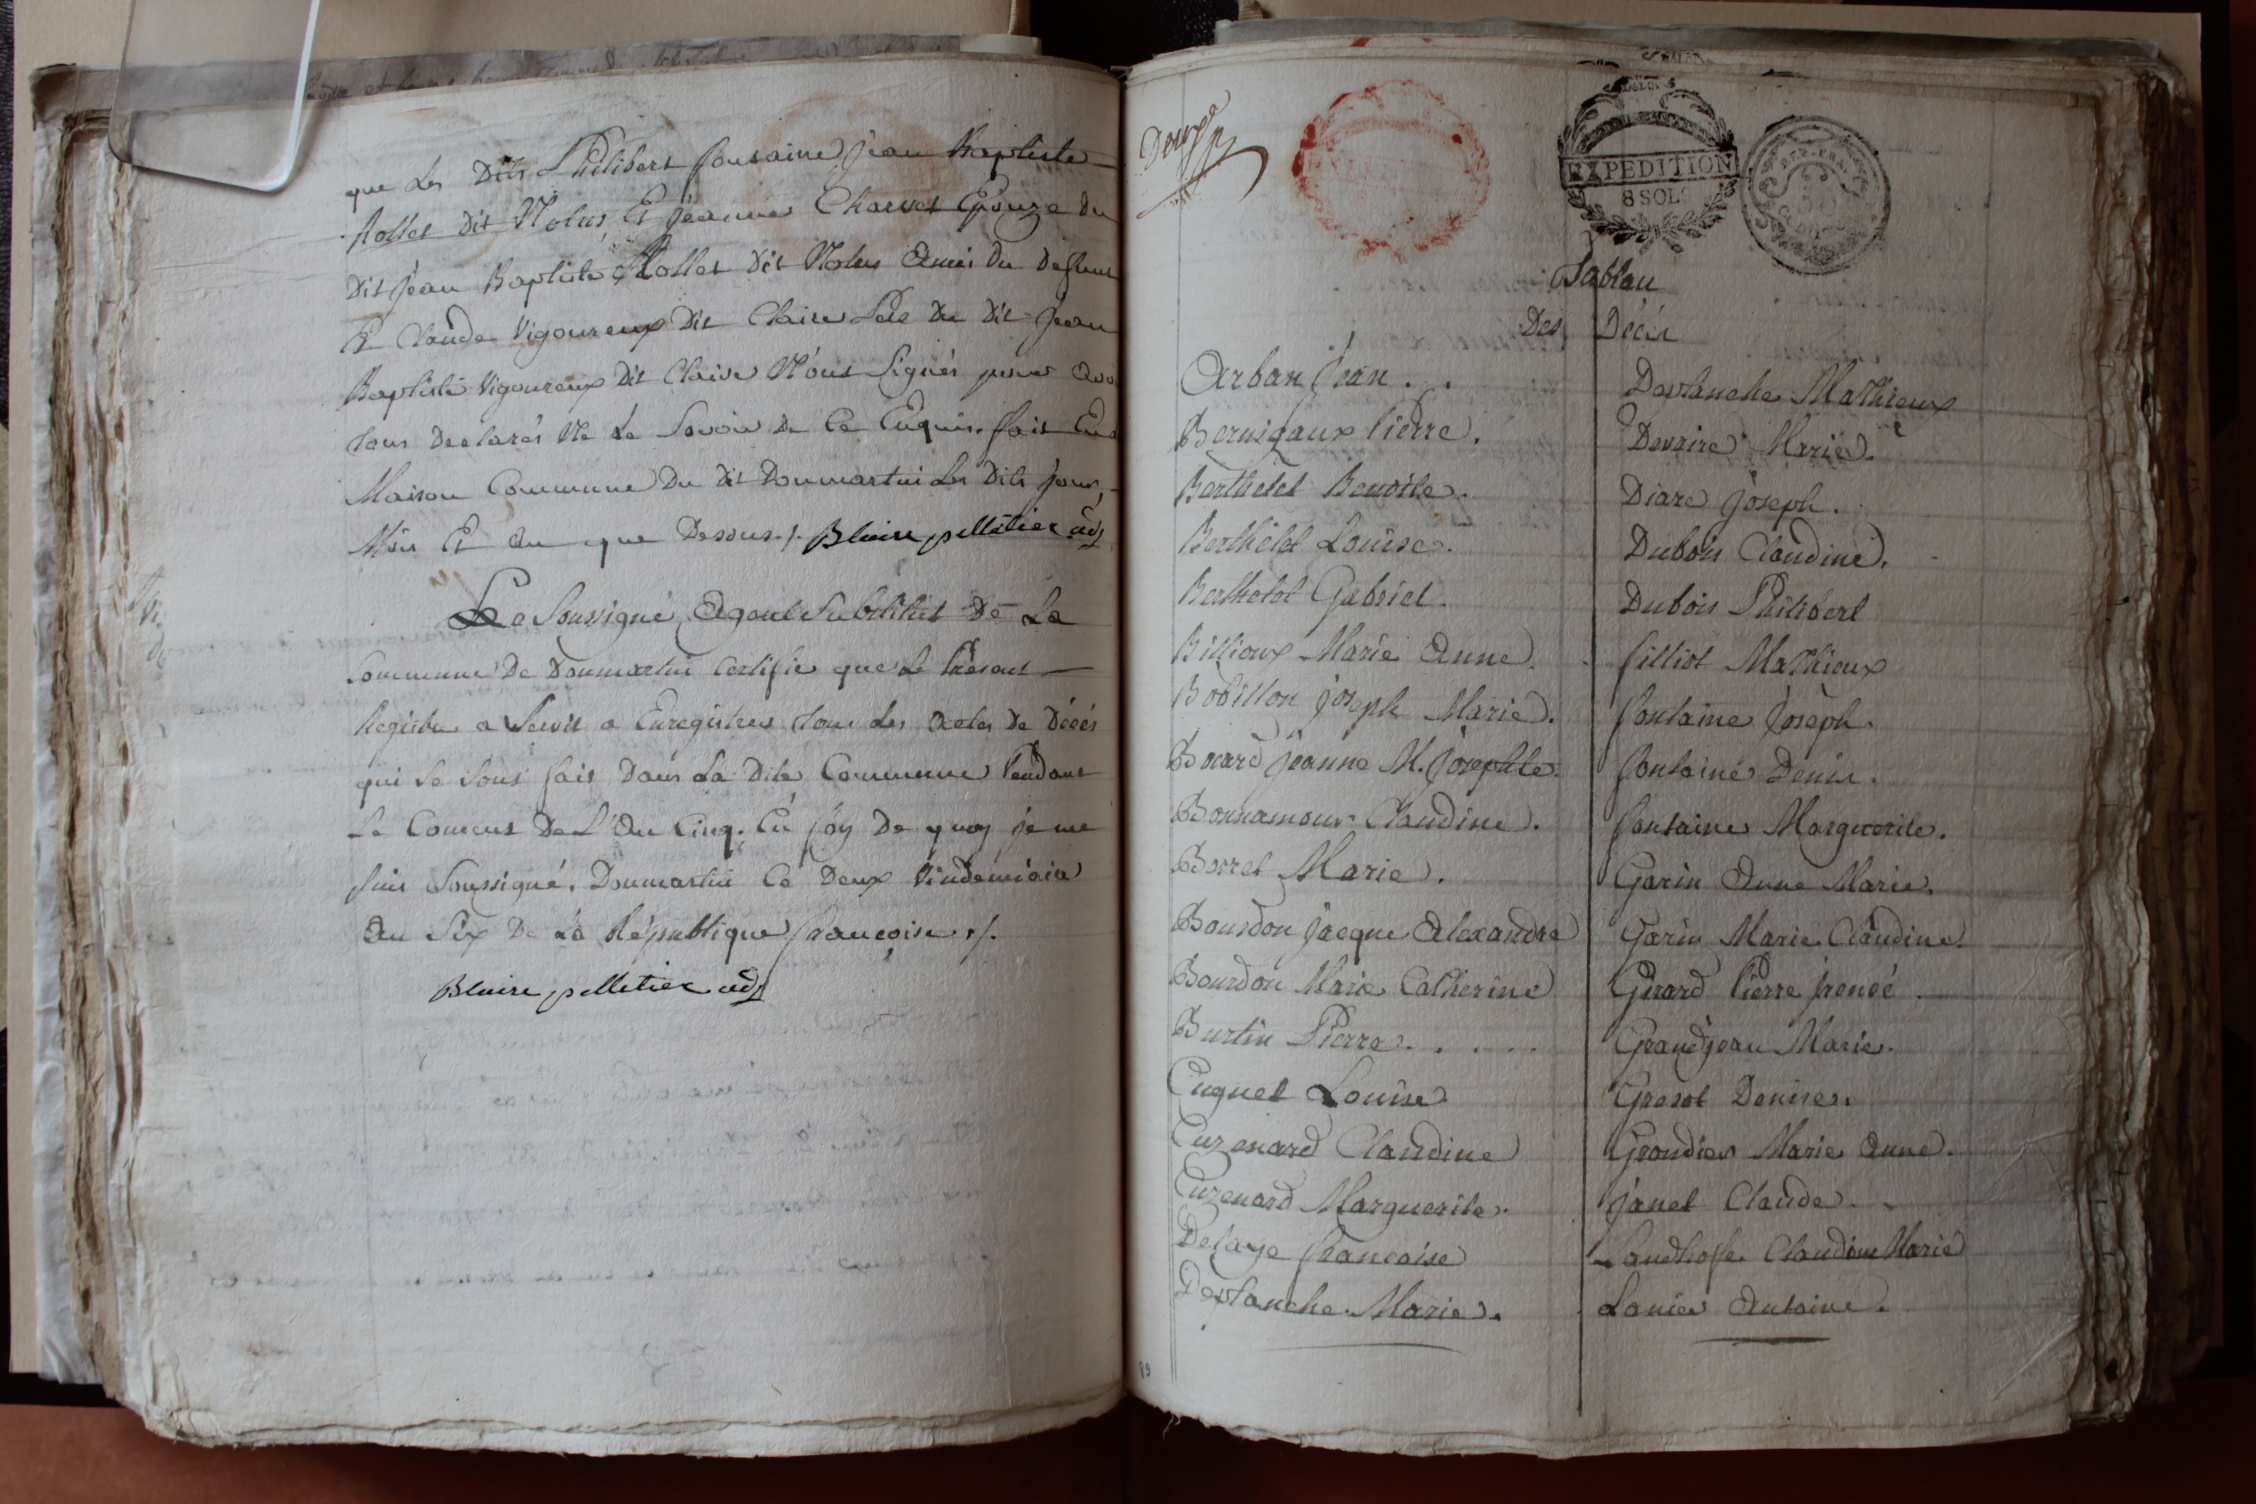 que les Dits Philibert fontaine, jean Baptiste
Rollet dit Nolus, Et jeanne Charvet Epouze du
dit jean Baptiste Rollet dit Nolus Amis du deffunt
Et Claude Vigoureux dit Claire Père du dit jean
Baptiste Vigoureux dit Claire N'ont Signés pour avo
tous declarés Ne le Savoir de Ce Enquis. fait En
Maison Commune du dit Donmartin Les dits jour,
Mois Et An que Dessus ./. Blaise pelletier adj
Le Soussigné Agent Substitut De La
Commune De Donmartin Certifie que le Présent
Registre a Servit a Enregistrer tous les Actes De Décés
qui Se Sont fait Dans La Dite Commune Pendant
Le Courens De L'An Cinq. En foy De quoy je me
suis Soussigné. Donmartin Ce Deux Vindemiaire
An Six De La République françoise ./.
Blaise pelletier adj
Douze
EXPEDITION
8 SOLS
REP. FRA
Tablau
Des Décés
Arban Jean . .
Bernigaux Pierre.
Berthelet Benoite.
Berthelet Louise.
Berthelet Gabriel.
Billioux Marie Anne.
Bobillon joseph Marie.
Bocard jeanne M. josephte.
Bonnamour Claudine.
Borret Marie.
Bourdon jacque Alexandre
Bourdon Marie Catherine
Burtin Pierre. . . . .
Cuguet Louise
Cuzenard Claudine
Cuzenard Marguerite.
Defaye francoise
Deplanche Marie.
Deplanche Mathieux
Devaire Marie.
Diare joseph.
Dubois Claudine.
Dubois Philibert
filliot Mathieux
fontaine joseph.
fontaine Denis.
fontaine Marguerite.
Garin Anne Marie.
Garin Marie Claudine.
Girard Pierre jrenée.
Grandjean Marie.
Gresot Denise.
Grandier Marie Anne.
janet Claude.
Landhosse Claudine Marie
Lanier Antoine.
89